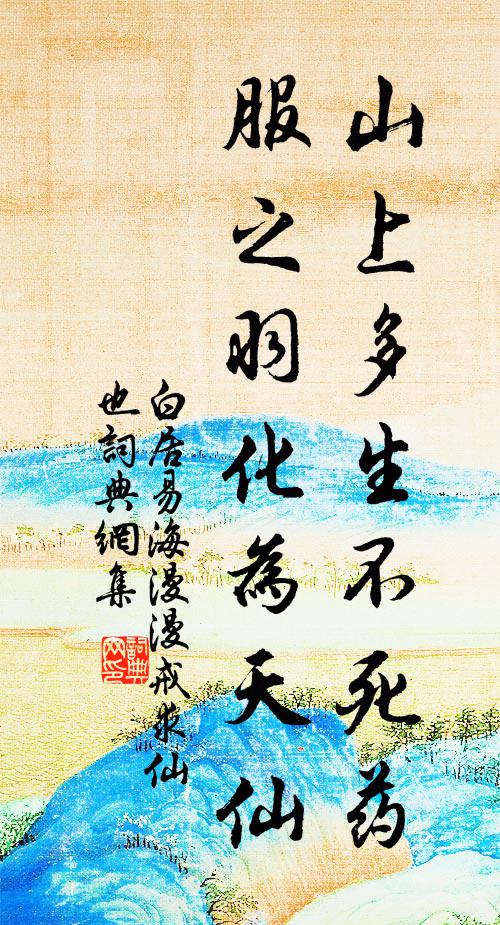 山上多生不死药
服之羽化為天仙
白居易海漫漫戒求仙
也詞典網集
詞典
网印